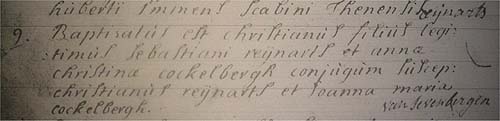 huberti Smmens Scabini Thenensis reijnarts
9. Baptisatus est christianus filius legi:
:timus sebastiani reijnarts et anna
christina cockelbergh conjugum suscep:
christianus reijnarts et Joanna maria
cockelbergh. van sevenbergen